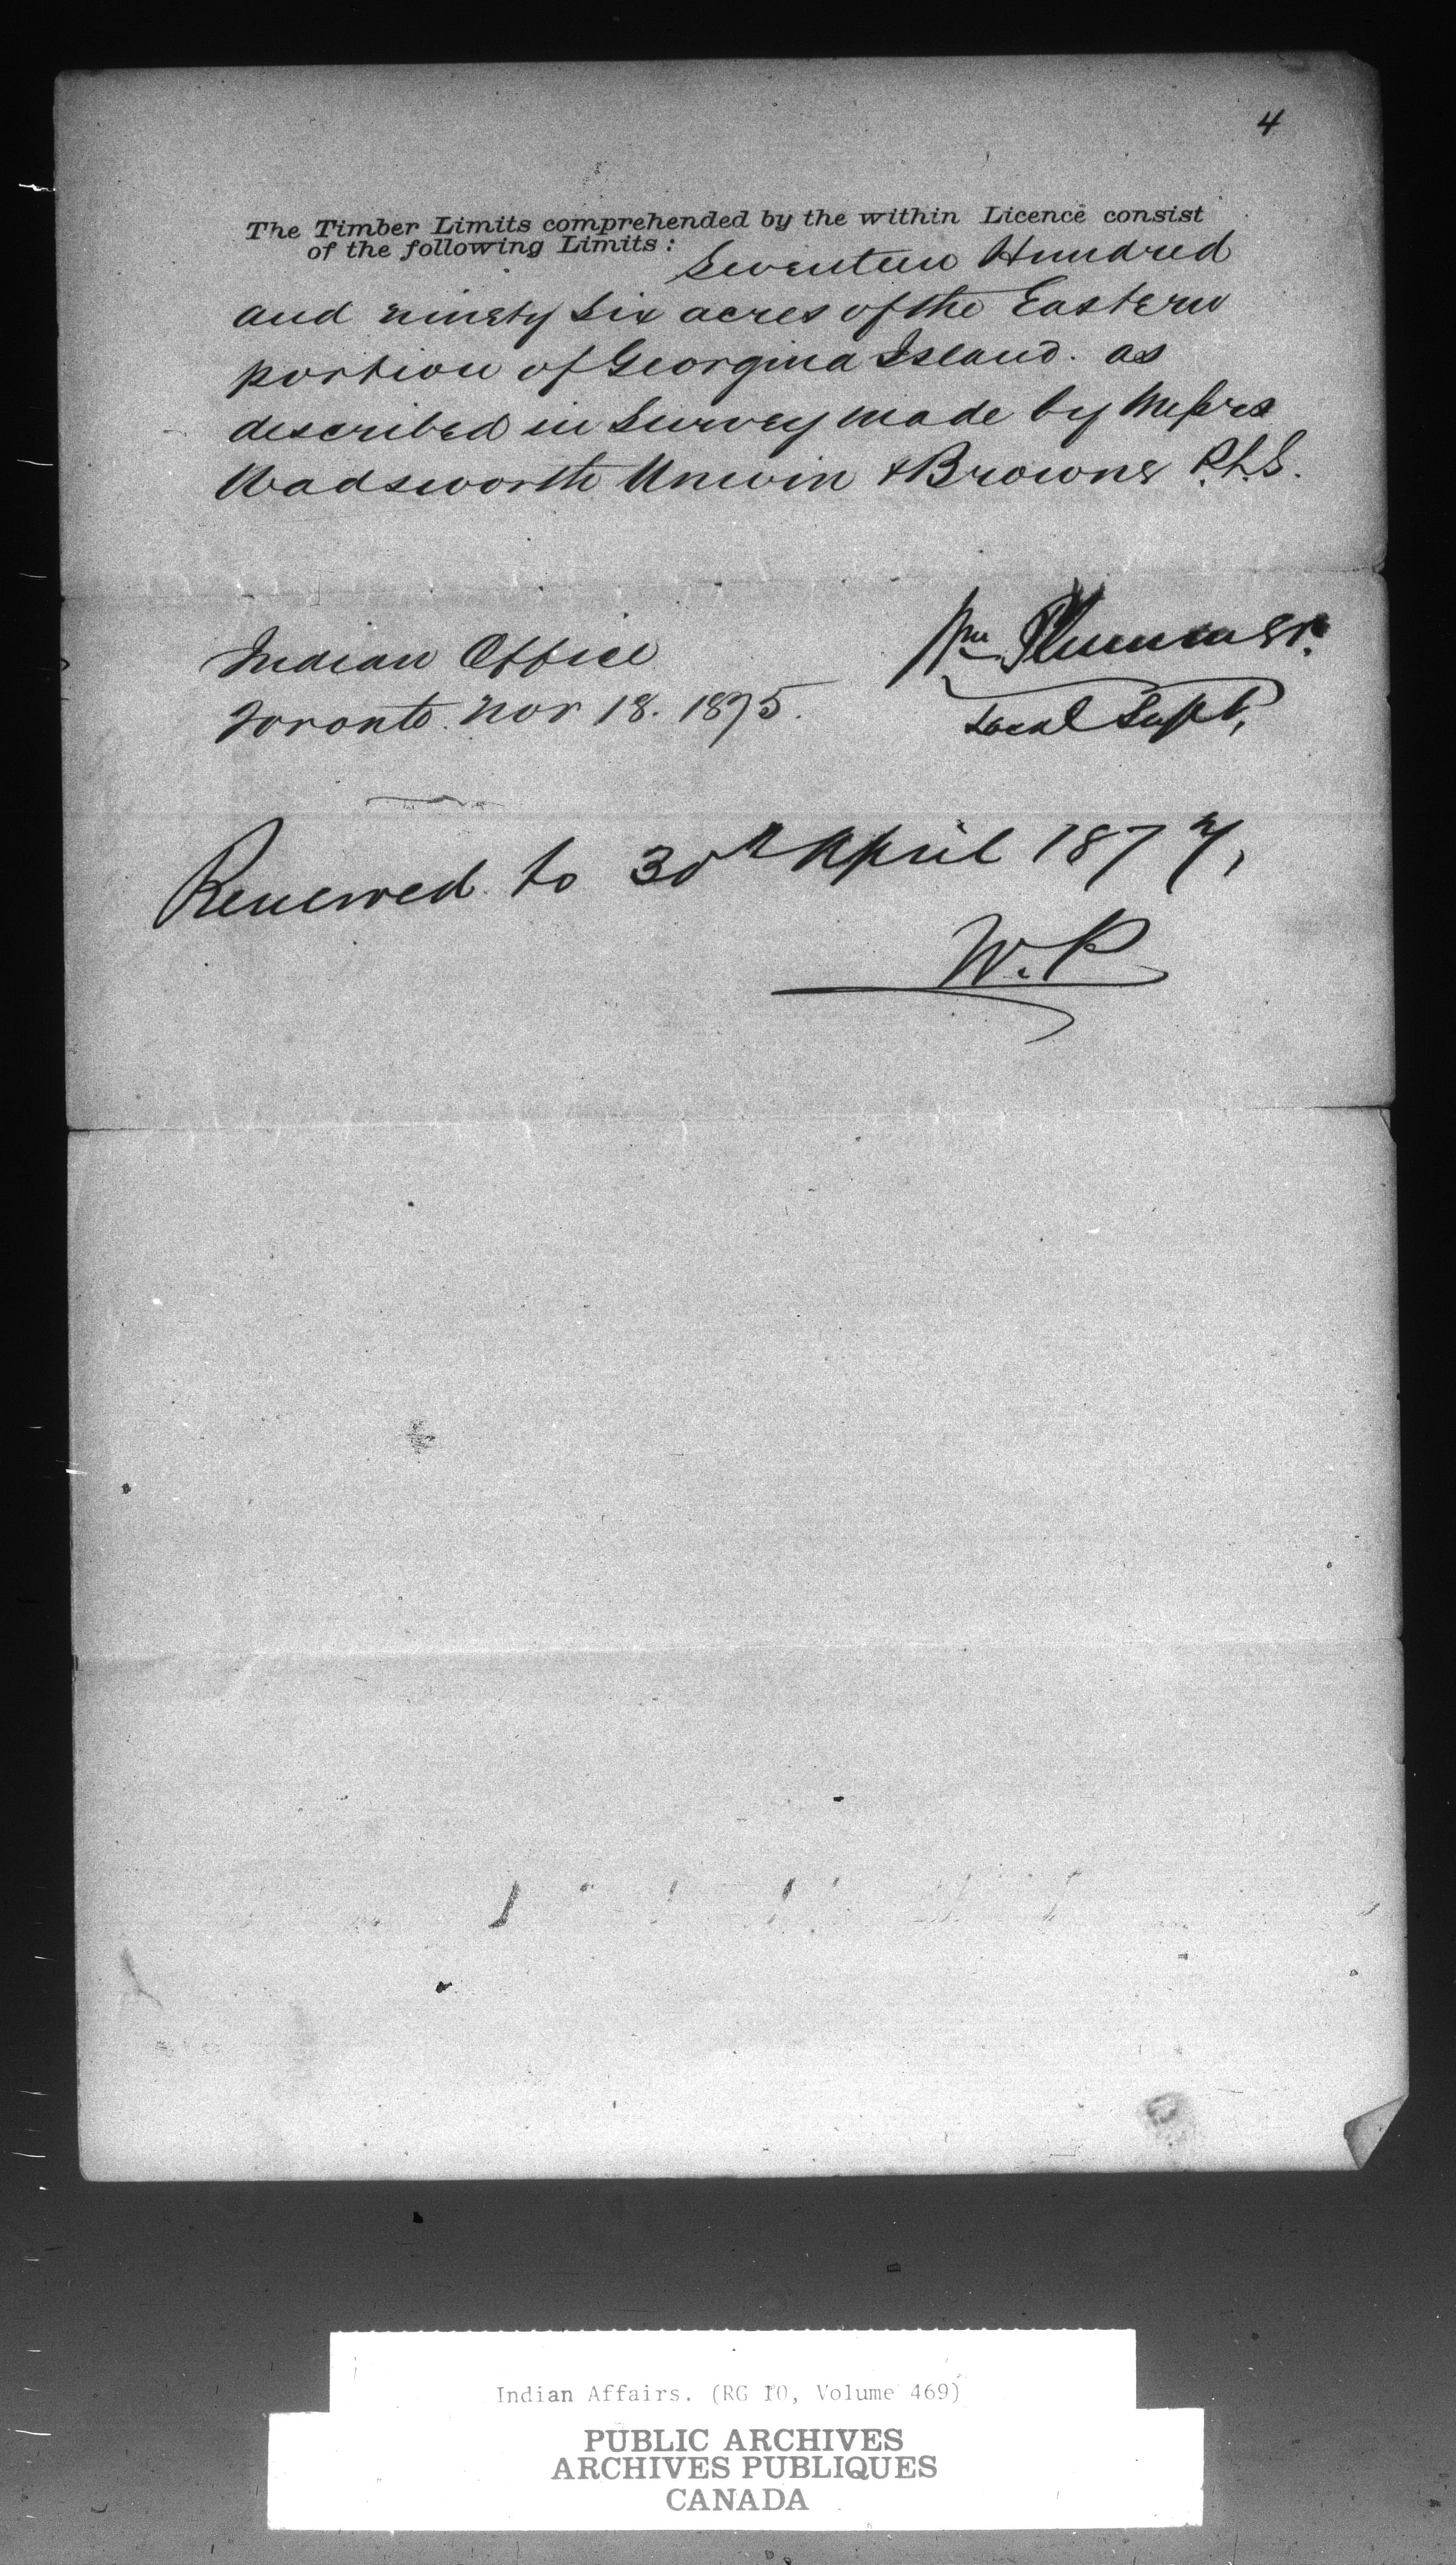 4
The Timber Limits comprehended by the within Licence consist
of the following Limits:
Seventeen Hundred
and ninety six acres of the Eastern
portion of Georgina Island. as
described in Survey made by Messrs
Wadsworth Unwin & Browne P.L.S.
Wm Plummer.
Indian Office
Local Supt,
Toronto. Nov 18. 1875.
Renewed to 30th April 1877,
W.P
Indian Affairs. (RG 10, Volume 469)
PUBLIC ARCHIVES
ARCHIVES PUBLIQUES
CANADA